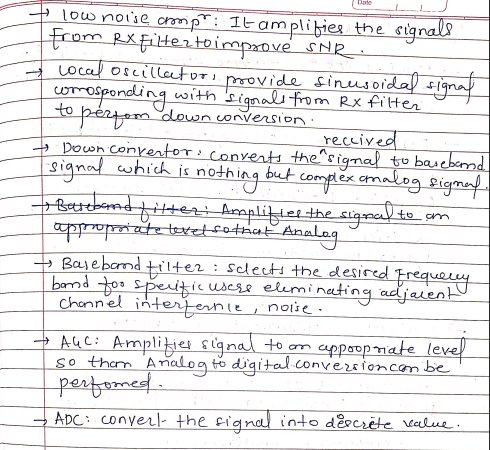 Date
→ low noise ampr: It amplifies the signals
from RX filter to improve SNR.
→ Local oscillator: provide sinusoidal signal
corrosponding with signals from Rx filter
to perform down conversion.
received
→ Down convertor: converts the ^ signal to baseband
signal which is nothing but complex analog signal.
→ Baseband filter: Amplifies the signal to an
appropriate level so that Analog
→ Baseband filter: selects the desired frequency
band for specific users eleminating adjacent
channel interfernce, noise.
→ AGC: Amplifies signal to an appropriate level
so than Analog to digital conversion can be
perfomed.
→ ADC: convert the signal into discrete value.